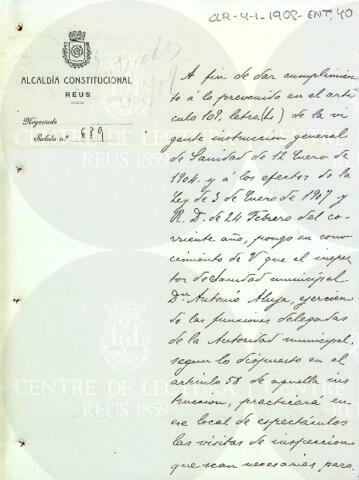 CLR-4-1-1908-ENT, 40
ALCALDÍA CONSTITUCIONAL
REUS
Negociado
Salida n.º 689
A fin de dar cumplimien
to á lo prevenido en el artí
culo 109, letra (h) de la vi
gente instrucción general
de Sanidad de 12 Enero de
1904 y á los efectos de la
Ley de 3 de Enero de 1907 y
R. D. de 24 Febrero del co-
rriente año, pongo en cono-
cimiento de V. que el inspec
tor de Sanidad municipal
Dn. Antonio Aluja, ejercien
do las funciones delegadas
de la Autoridad municipal,
segun lo dispuesto en el
artículo 58 de aquella ins
truccion, practicará en
ese local de espectáculos
las visitas de inspeccion
que sean necesarias para
CENTRE DE LECTURA
REUS 1859